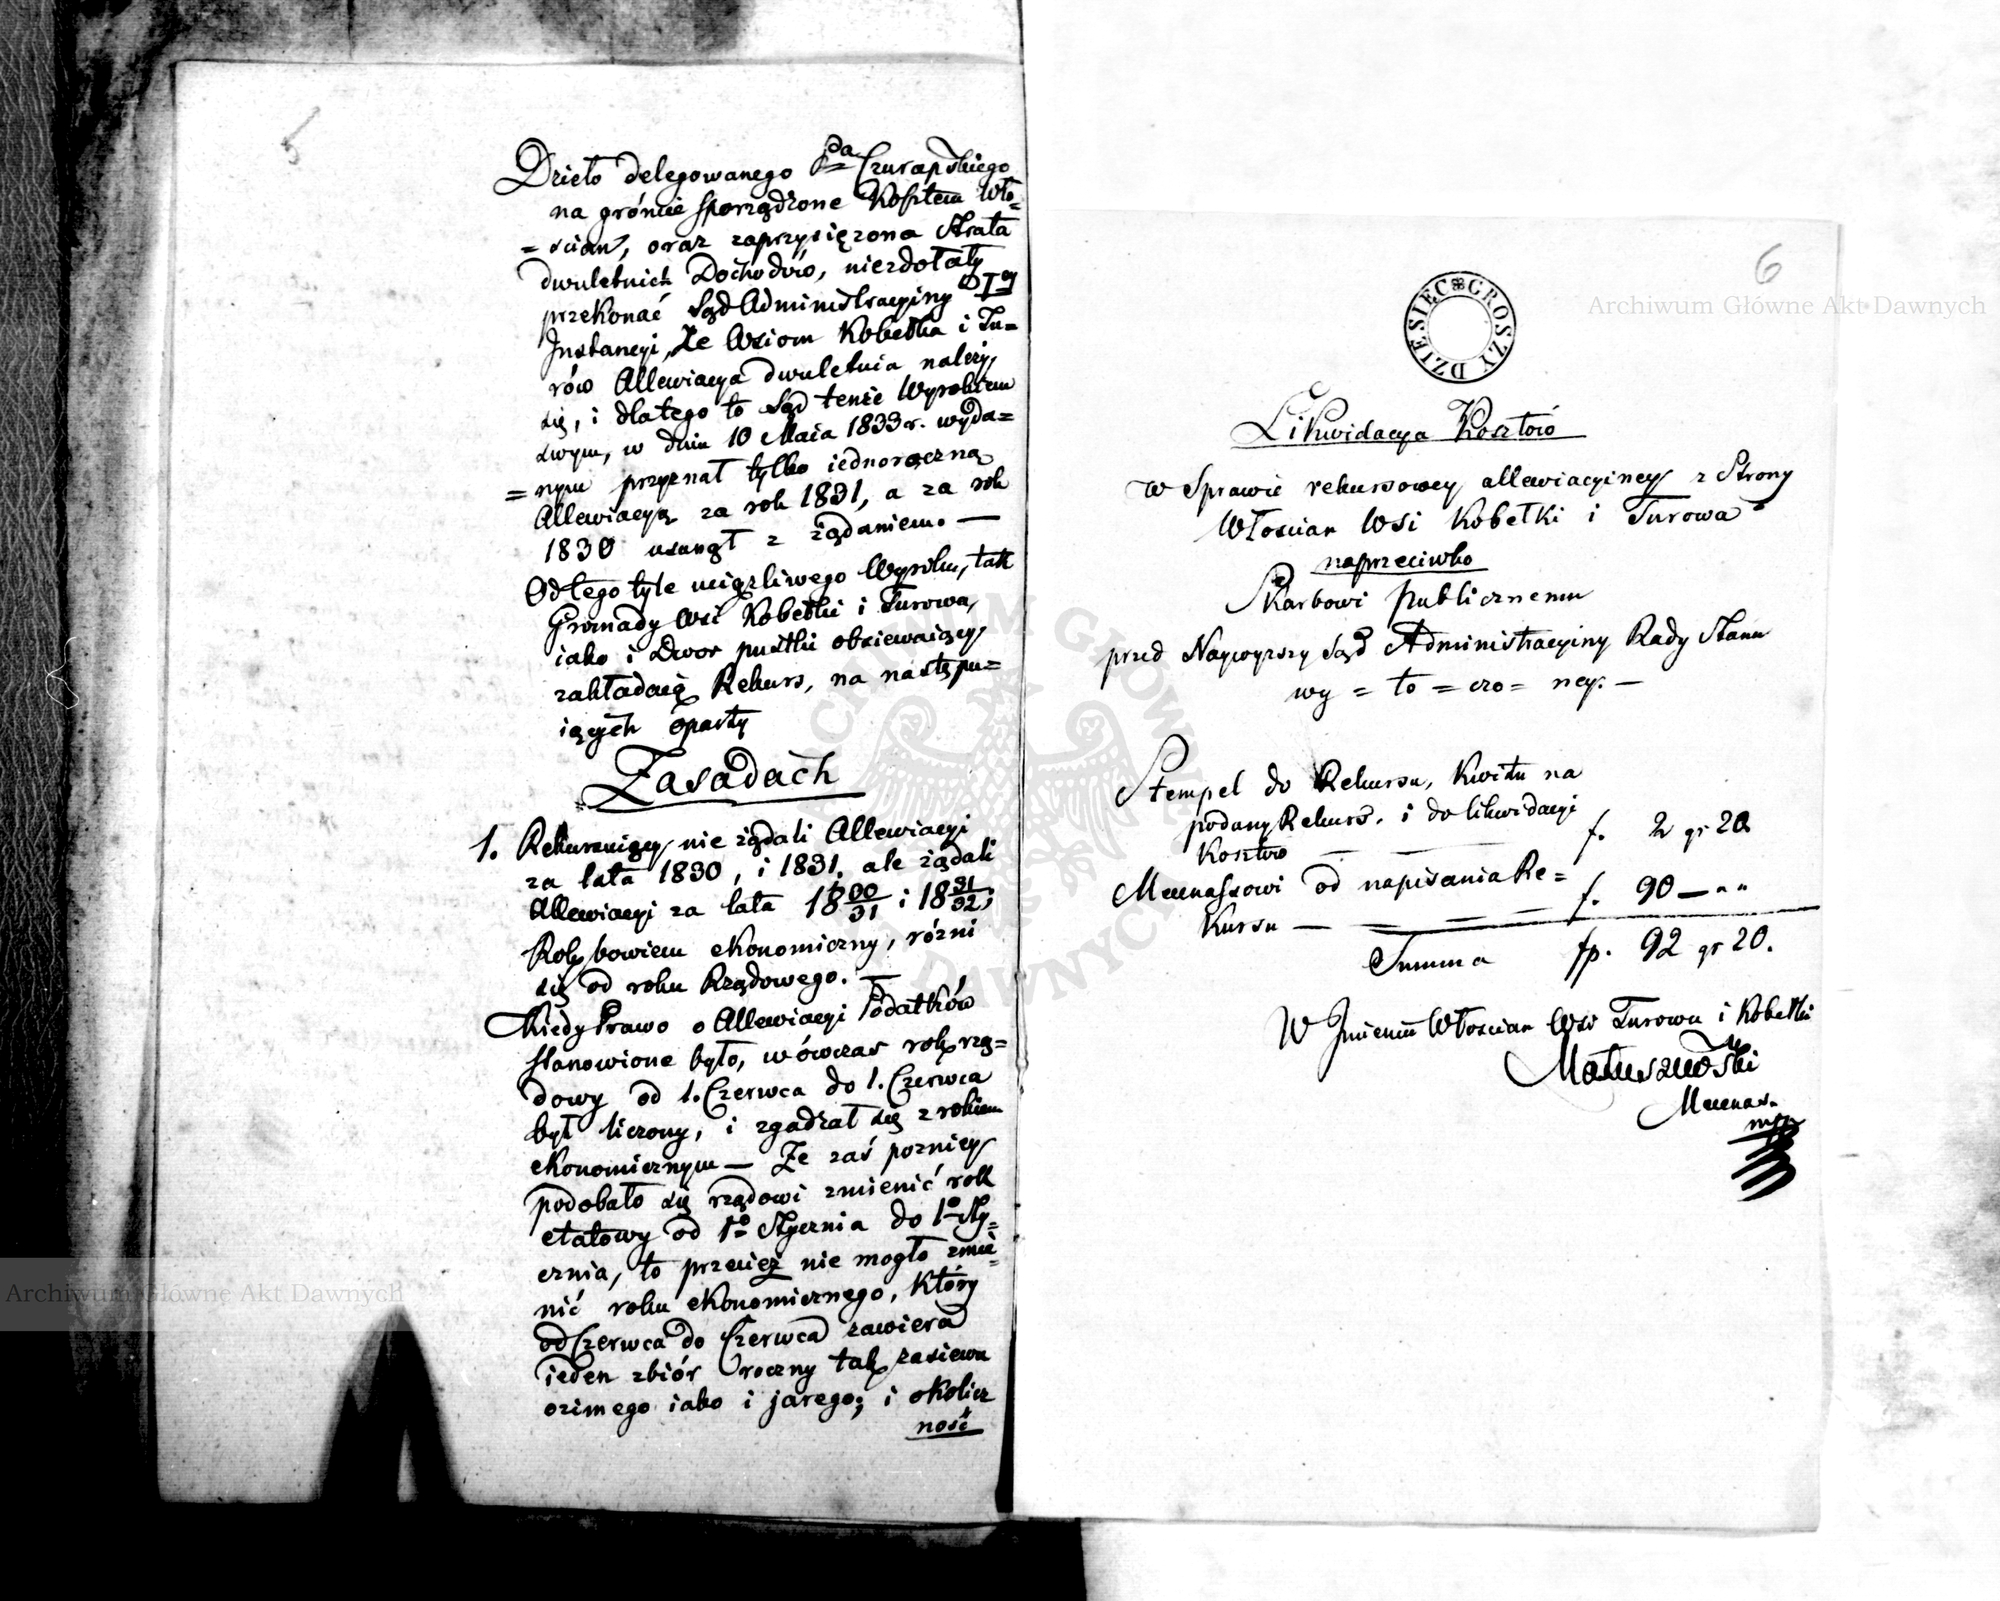 5
Dzieło delegowanego Pa Czurapskiego
na gróncie sporządzone Kosztem Wło=
=scian, oraz zaprzysiężona Strata
dwuletnich Dochodów, niezdołały
przekonać Sąd Administracyiny I ey
Instancyi, Ze Wsiom Kobełka i Tu=
rów Allewiacya dwuletnia należy
się, i dlatego to Sąd tenże Wyrokiem
swym, w dniu 10 Maia 1833 r. wyda=
=nym przyznał tylko iednoroczną
Allewiacyą za rok 1831, a za rok
1830 usunął z żądaniem. —
Od tego tyle uciążliwego Wyroku, tak
Gromady Wsi Kobełki i Turowa,
iako i Dwor pustki obsiewaiący
zakładaią Rekurs, na następu=
iących oparty
Zasadach
1. Rekuruiący nie żądali Allewiacyi
za lata 1830, i 1831, ale żądali
Allewiacyi za lata 18 30/31 i 18 31/32,
Rok bowiem ekonomiczny, różni
się od roku Rządowego. —
Kiedy Prawo o Allewiacyi Podatków
stanowione było, wówczas rok rzą=
dowy od 1. Czerwca do 1. Czerwca
był liczony, i zgadzał się z rokiem
ekonomicznym — Ze zaś pozniey
podobało się rządowi zmienić rok
etatowy od 1o Stycznia do 1o Sty=
cznia, to przecież nie mogło zmie=
nić roku ekonomicznego, Który
od Czerwca do Czerwca zawiera
ieden zbiór roczny tak zasiewu
ozimego iako i jarego; i okolicz
ność
6
DZIESIĘC GROSZY
Likwidacya Kosztów
w Sprawie rekursowey allewiacyiney z Strony
Włoscian Wsi Kobełki i Turowa
naprzeciwko
Skarbowi publicznemu
przed Naywyzszy Sąd Administracyiny Rady Stanu
wy = to = czo = ney. —
Stempel do Rekursu, Kwitu na
podany Rekurs, i do likwidacyi
Kosztów — — — f. 2 gr 20.
Mecenasowi od napisania Re=
Kursu — — — — f. 90 — " "
Summa fp. 92 gr 20.
W Imieniu Włoscian Wsi Turowa i Kobełki
Matuszewski
Mecenas.
mp
Archiwum Główne Akt Dawnych
Archiwum Główne Akt Dawnych
ARCHIWUM GŁÓWNE AKT DAWNYCH